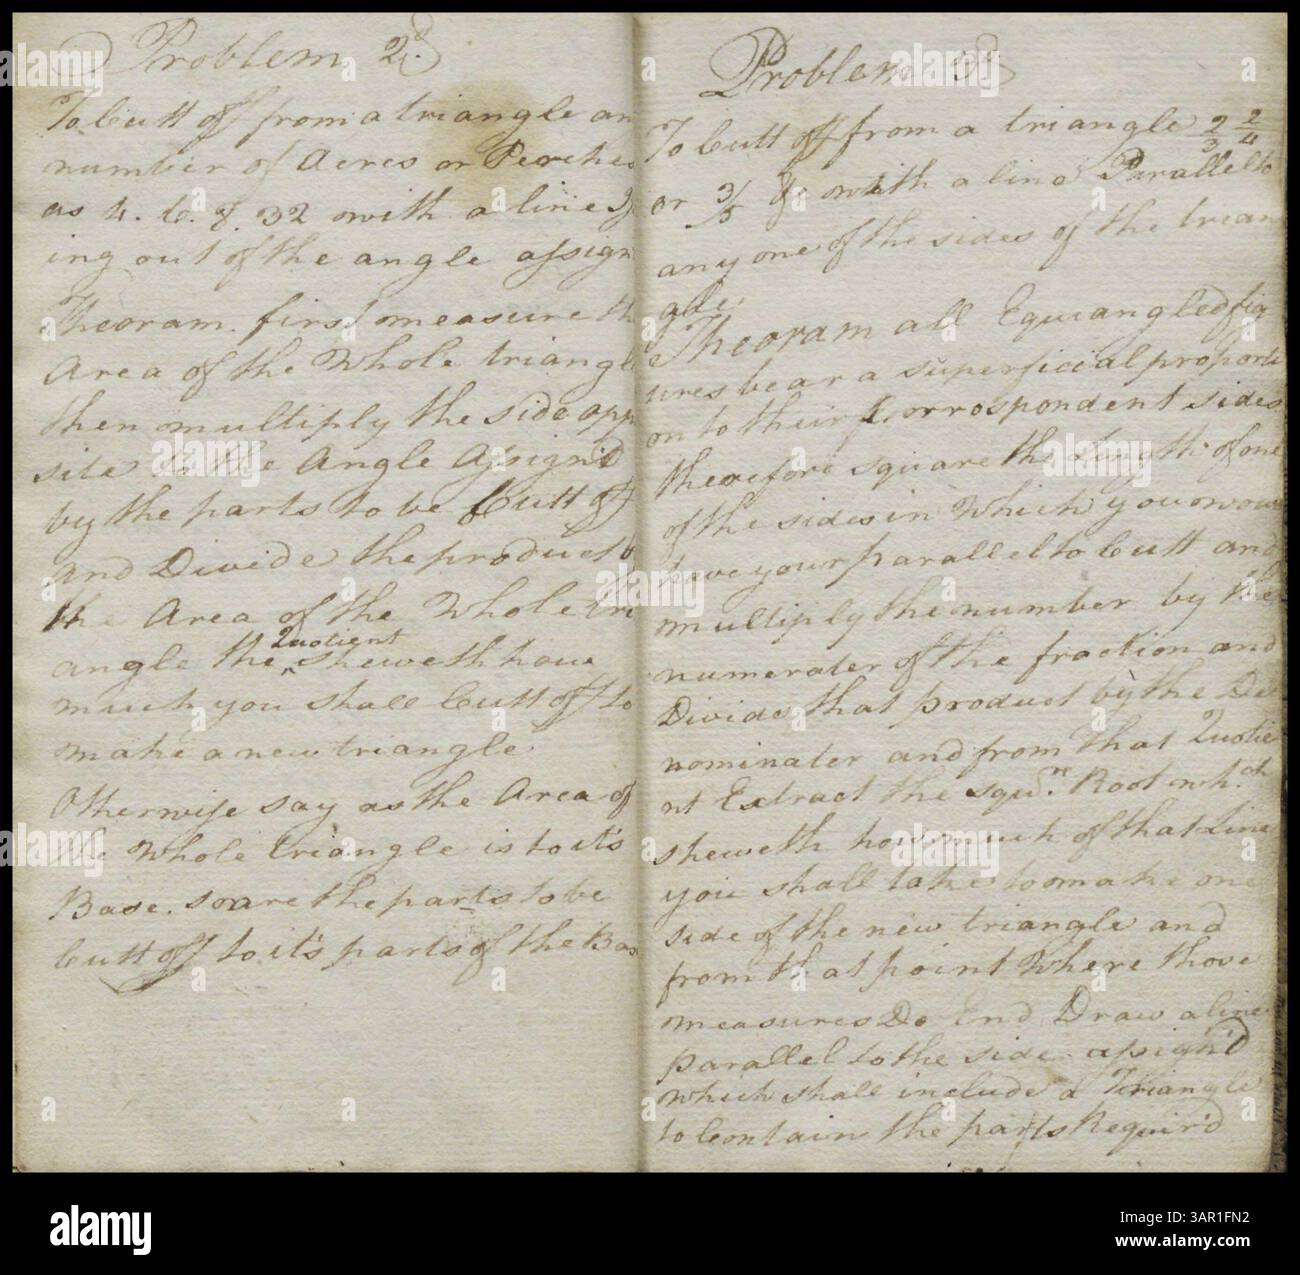 Problem 2d
To Cutt off from a triangle an
number of Acres or Perches
as 4. C. & 32 with a line
ing out of the angle assign
Theoram. first measure th
Area of the Whole triangle
then multiply the side opp
site to the Angle Assign'd
by the parts to be Cutt off
and Divide the product b
the Area of the Whole tri
angle the Quotient sheweth how
much you shall Cutt off to
make a new triangle
Otherwise say as the Area of
the Whole triangle is to it's
Base. so are the parts to be
Cutt off to it's parts of the Bas
Problem 3d
To Cutt off from a triangle 2/3 2/4
or 3/5 &c with a line Parallel to
any one of the sides of the trian
gle:
Theoram all Equiangled fig
ures bear a superficial proporti
on to their Corrospondent sides
therefore square the Length of one
of the sides in Which you wou
have your parallel to Cutt and
multiply the number by the
numerater of the fraction and
Divide that product by the De
nominater and from that Quotie
nt Extract the squre. Root wh.ch
sheweth how much of that Line
you shall take to make one
side of the new triangle and
from that point Where those
measures Do End Draw a line
parallel to the side assign'd
which shall include a Triangle
to Contain the parts Requir'd
alamy
a
3AR1FN2
www.alamy.com